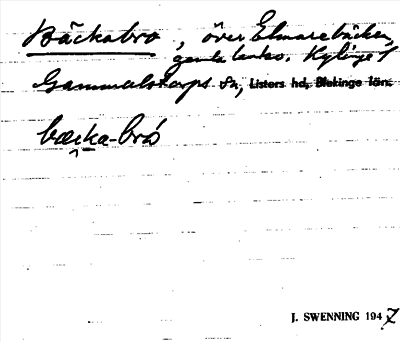 Bäckabro, över Elmarebäcken,
gamla landsv. Kylinge S
Gammalstorps sn, Listers hd, Blekinge län.
bæcka-bró
J. SWENNING 1947